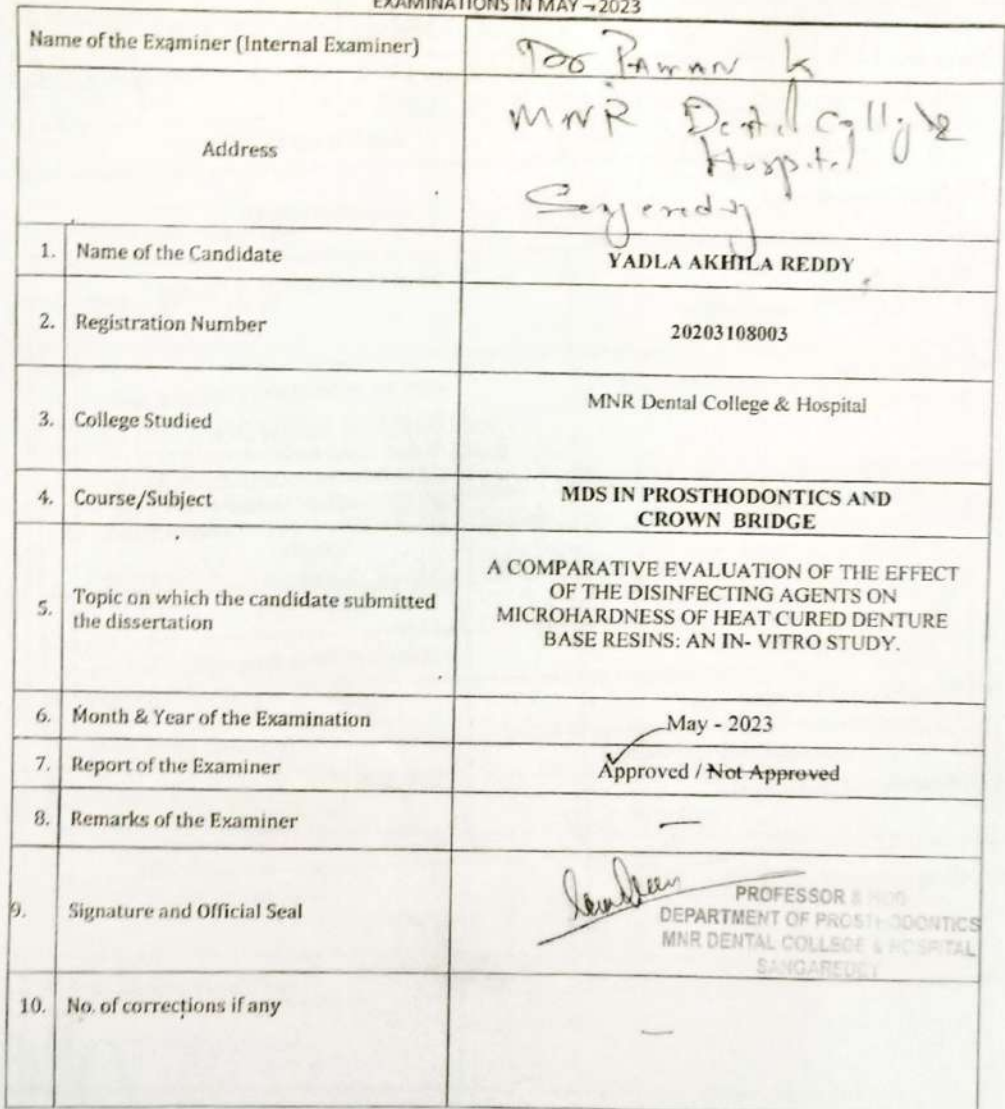 EXAMINATIONS IN MAY - 2023
Name of the Examiner (Internal Examiner)
Dr Pawan K
Address
MNR Dental College
Hospital
Sangareddy
1. Name of the Candidate
YADLA AKHILA REDDY
2. Registration Number
20203108003
3. College Studied
MNR Dental College & Hospital
4. Course/Subject
MDS IN PROSTHODONTICS AND
CROWN BRIDGE
5. Topic on which the candidate submitted
the dissertation
A COMPARATIVE EVALUATION OF THE EFFECT
OF THE DISINFECTING AGENTS ON
MICROHARDNESS OF HEAT CURED DENTURE
BASE RESINS: AN IN- VITRO STUDY.
6. Month & Year of the Examination
May - 2023
7. Report of the Examiner
Approved / Not Approved
8. Remarks of the Examiner
—
9. Signature and Official Seal
PROFESSOR & HOD
DEPARTMENT OF PROSTHODONTICS
MNR DENTAL COLLEGE & HOSPITAL
SANGAREDDY
10. No. of corrections if any
—